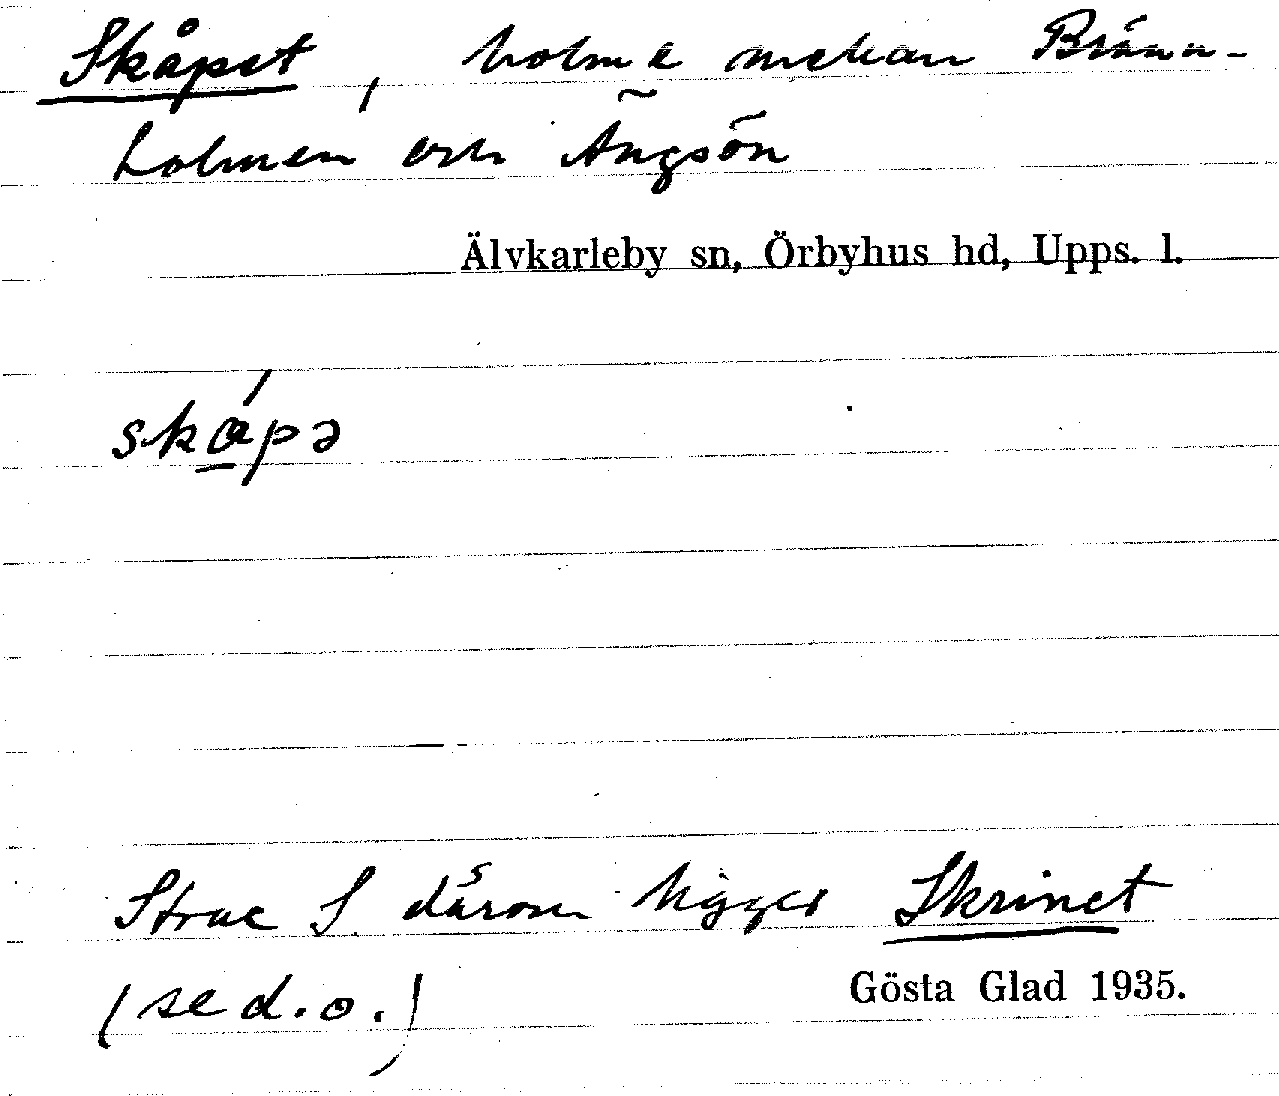 Skåpet, holme mellan Bränn-
holmen och Ängsön
Älvkarleby sn, Örbyhus hd, Upps. l.
skápə
Strax S. därom ligger Skrinet
(se d.o.)
Gösta Glad 1935.